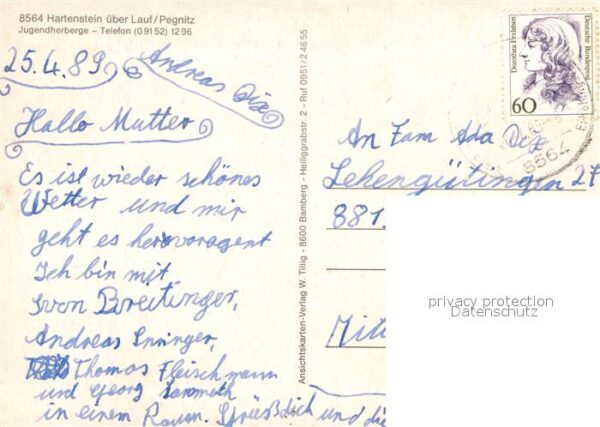 8564 Hartenstein über Lauf/Pegnitz
Jugendherberge - Telefon (09152) 1296
25.4.89 Andreas Dix
Hallo Mutter
Es ist wieder schönes
Wetter und mir
geht es hervoragent
Ich bin mit
Ivon Breitinger,
Andreas
Thomas Fleischmann
und Georg
in einem Raum. Grüßdich und die
Ansichtskarten-Verlag W. Tillig - 8600 Bamberg - Heiliggrabstr. 2 - Ruf 0951/24655
Dorothea Erxleben
Deutsche Bundespost
60
8564
An Fam Ada Dix
Lehengütingen 27
881.
privacy protection
Datenschutz